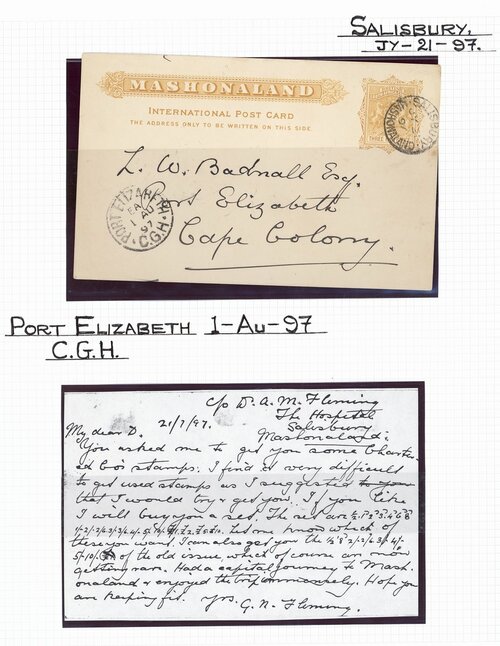 SALISBURY.
JY-21-97.
MASHONALAND
INTERNATIONAL POST CARD
THE ADDRESS ONLY TO BE WRITTEN ON THIS SIDE
THREE
SALISBURY
L. W. Badnall Esq.
Port Elizabeth
Cape Colony.
PORT ELIZABETH
1 AU
97
C.G.H.
PORT ELIZABETH 1-AU-97
C.G.H.
c/o Dr. A. M. Fleming
The Hospital
Salisbury
My dear D. 21/7/97. Mashonaland:
You asked me to get you some Charter-
ed Co's stamps. I find it very difficult
to get used stamps as I suggested to you
that I would try & get you. If you like
I will buy you a set. The set are
Let me know which of
these you want. I can also get you the
of the old issue, which of course are now
getting rare. Had a capital journey to Mash-
onaland & enjoyed the trip immensely. Hope you
are keeping fit. Yrs.
G. N. Fleming.